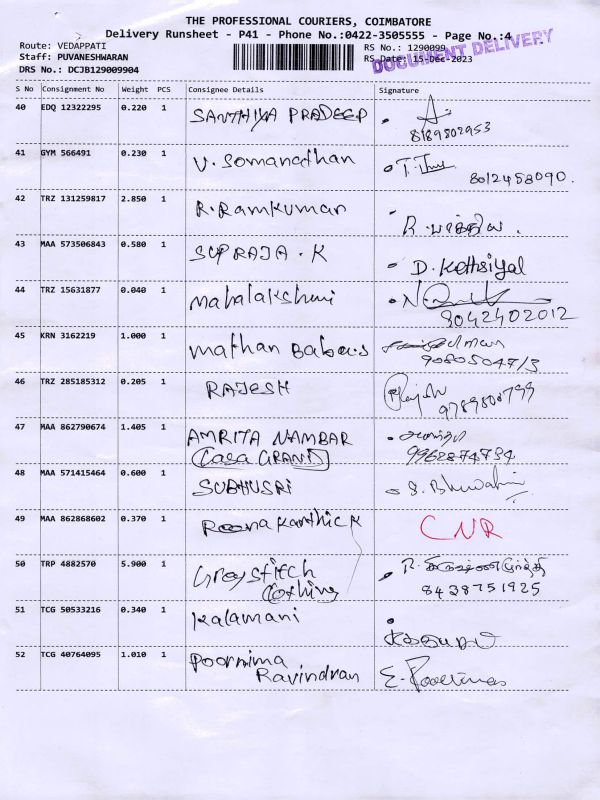 THE PROFESSIONAL COURIERS, COIMBATORE
Delivery Runsheet - P41 - Phone No.:0422-3505555 - Page No.:4
Route: VEDAPPATI
RS No.: 1290099
Staff: PUVANESHWARAN
RS Date: 15-Dec-2023
DRS No.: DCJB129009904
DOCUMENT DELIVERY
S No Consignment No Weight PCS Consignee Details Signature
40 EDQ 12322295 0.220 1 SANTHIYA PRADEEP
8189502953
41 GYM 566491 0.230 1 V. Somanathan
8012458090.
42 TRZ 131259817 2.850 1 R. Ramkumar
43 MAA 573506843 0.580 1 SUPRAJA . K D. Kothsiyal
44 TRZ 15631877 0.040 1 Mahalakshmi
8042402012
45 KRN 3162219 1.000 1 Mathan Babu.S
46 TRZ 285185312 0.205 1 RAJESH Rajesh
9789500799
47 MAA 862790674 1.405 1 AMRITA NAMBAR
(Casa GRAND) 9962874734
48 MAA 571415464 0.600 1 SUBHUSRI
49 MAA 862868602 0.370 1 Roona Karthick CNR
50 TRP 4882570 5.900 1 Greystitch R. கிருஷ்ணமூர்த்தி
Clothing 8438751925
51 TCG 50533216 0.340 1 Kalamani
52 TCG 40764095 1.010 1 Poornima
Ravindran